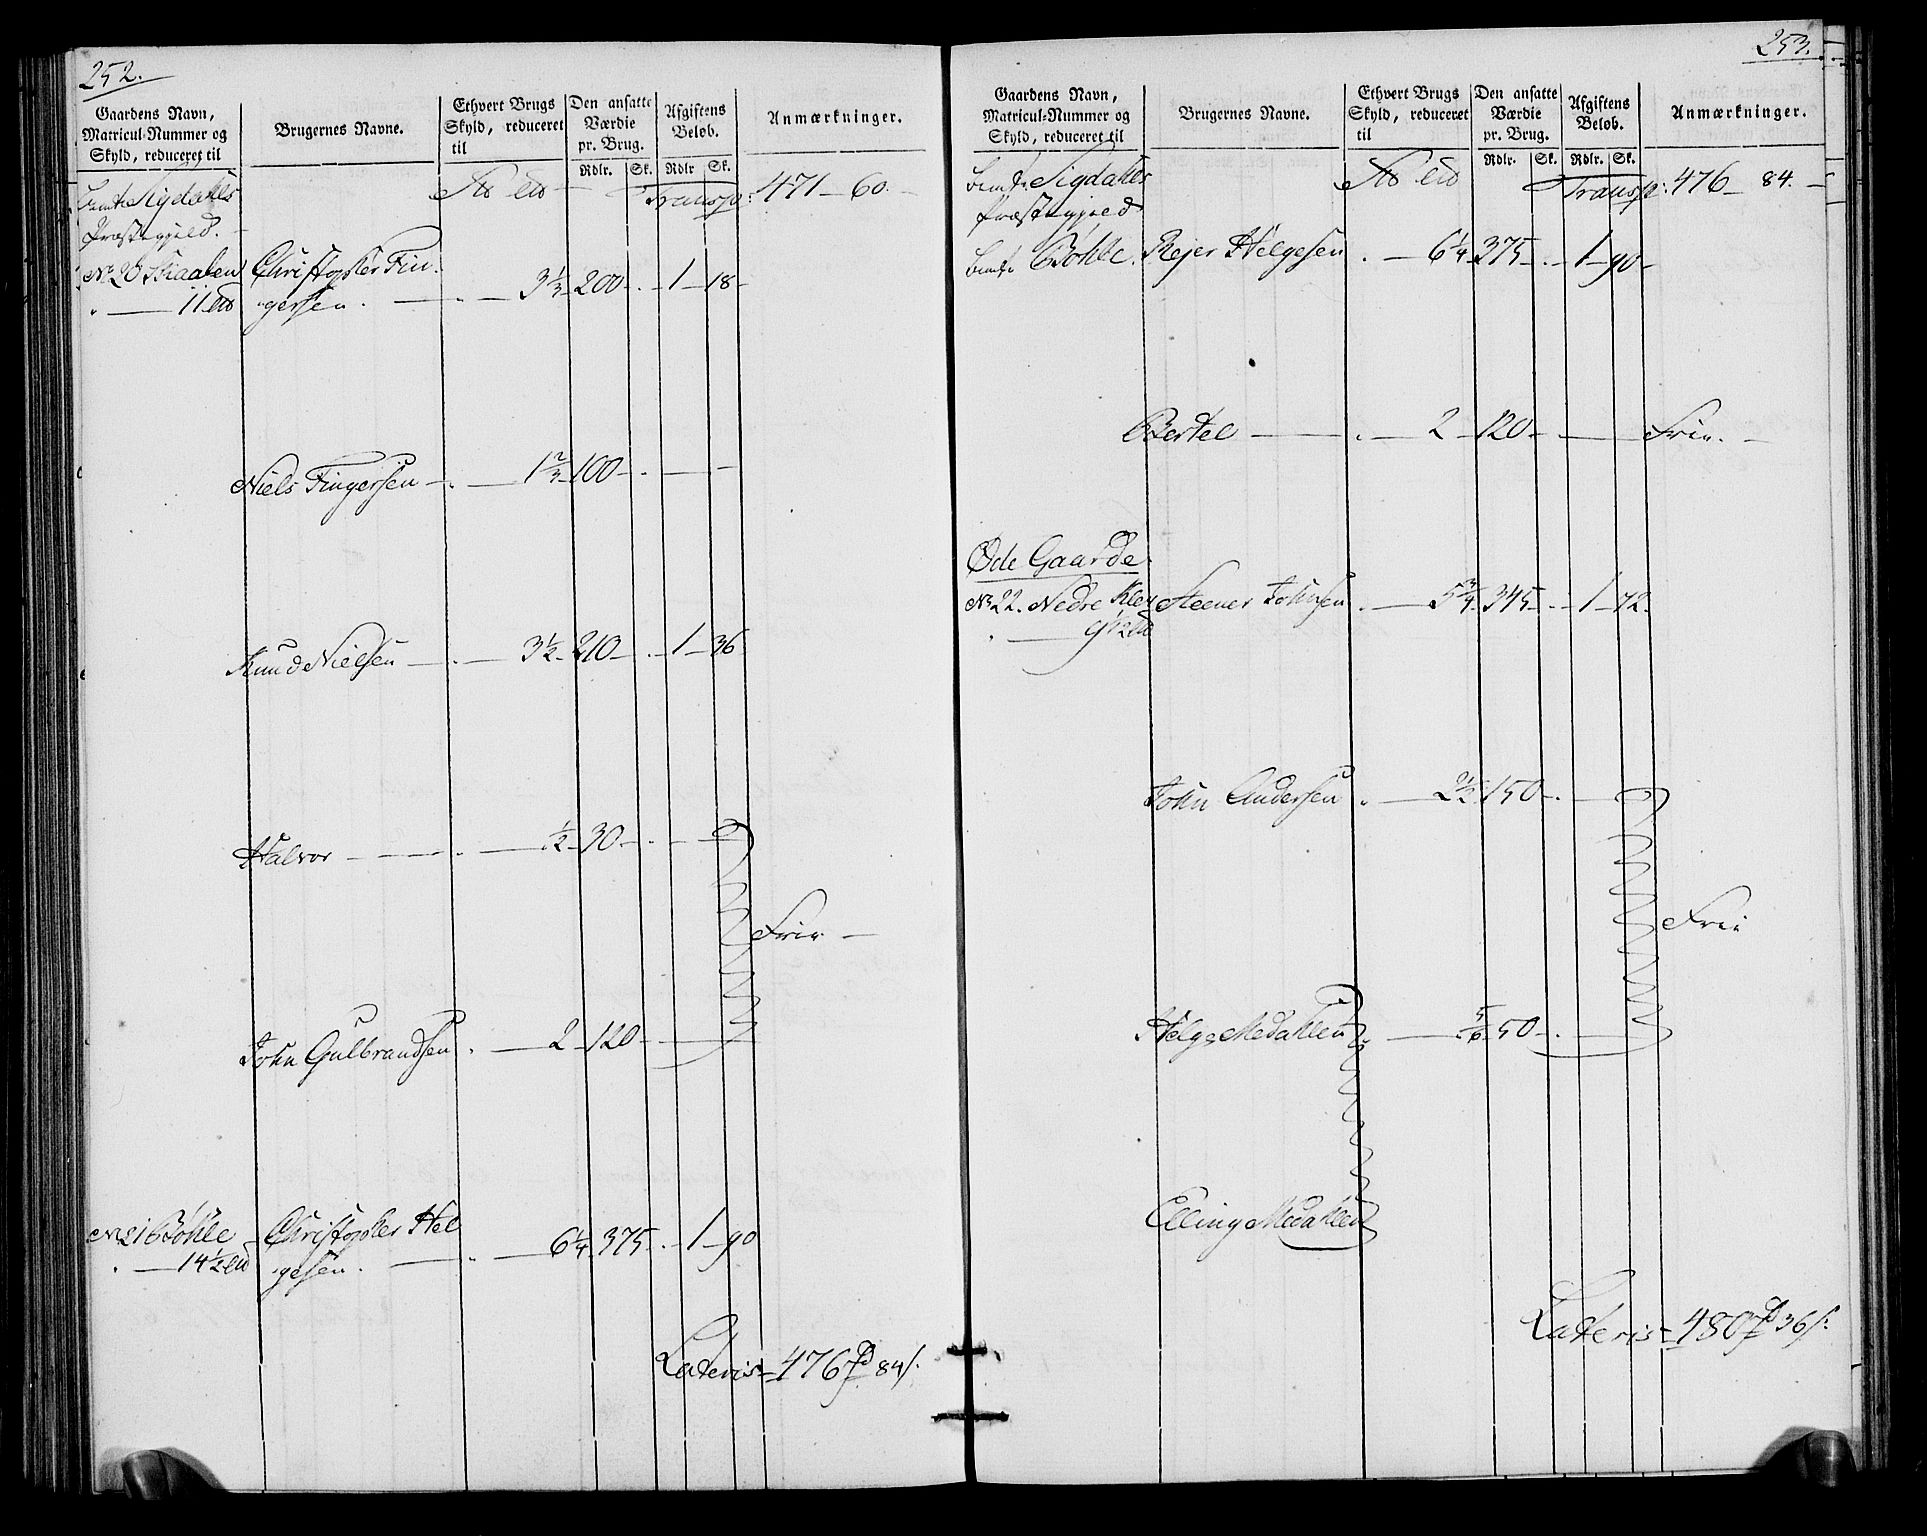 252.
Gaardens Navn,
Matricul-Nummer og
Skyld, reduceret til
Brugernes Navne.
Ethvert Brugs
Skyld, reduceret
til
Den ansatte
Værdie
pr. Brug.
Rdlr. Sk.
Afgiftens
Beløb.
Rdlr Sk.
Anmærkninger.
Sigdahls Transp: 471 - 60.
Præstegjeld.
No 20 Skaalen Christopher Fin- 3 1/3 - 200 - . - 1 - 18 -
11 gersen.
Niels Fingersen - . - 1 2/3 - 100 - . -
Knud Nielsen - . - 3 1/2 - 210 - . - 1 - 36
Halvor - . - 1/2 - 30 - . -
Frie. -
John Gulbrandsen . - 2 - 120 -
No 21 Bøhle Christopher Hel 6 1/4 - 375 - . - 1 - 90
14 1/2 gesen.
Lateris = 476 84 s.
253.
Gaardens Navn,
Matricul-Nummer og
Skyld, reduceret til
Brugernes Navne.
Ethvert Brugs
Skyld, reduceret
til
Den ansatte
Værdie
pr. Brug.
Rdlr. Sk.
Afgiftens
Beløb.
Rdlr. Sk.
Anmærkninger.
Sigdahls Transp: 476 - 84. -
Præstegjeld
Bøhle. Rejer Helgesen . - 6 1/4 - 375 - . - 1 - 90 -
Bertel - . - 2 - 120 - . - Frie. -
Øde Gaarde
No 22. Nedre Kley Steener Johnsen . - 5 3/4 - 345 - . - 1 - 72.
9 1/2
John Andersen . - 2 1/2 - 150 - . -
Frie
Helge Medahlen . - 5/6 - 50 - . -
Elling Medahlen
Lateris = 480 36 s: